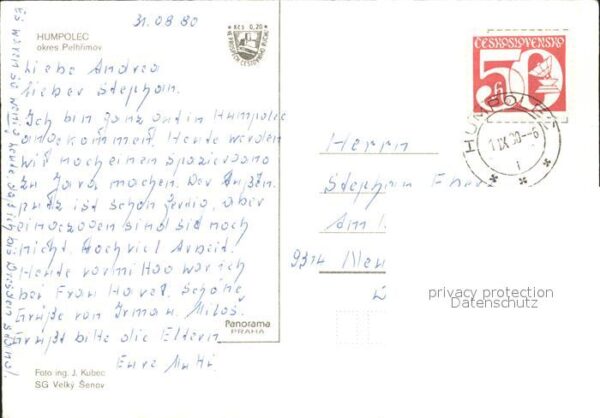 31.08 80
HUMPOLEC
okres Pelhřimov
Kčs 0,20
Liebe Andrea
lieber Stephan.
Ich bin ganz gut in Humpolec
angekommen. Heute werden
wir noch einen spaziergang
zu Jara machen. Der Außen-
putz ist schon fertig, aber
eingezogen sind sie noch
nicht. Noch viel Arbeit.
Heute vormittag war ich
bei Frau Havel. Schöne
Grüße von Irman. Miloš.
Grüßt bitte die Eltern
Eure Mutti
Es waren so wenig Leute das ich bis Dresden
Panorama
PRAHA
Foto ing. J. Kubec
SG Velký Šenov
ČESKOSLOVENSKO
50
h
HUMPOLEC
1. IX. 80 --6
1
Herrn
Stephan
Am
9314
privacy protection
Datenschutz